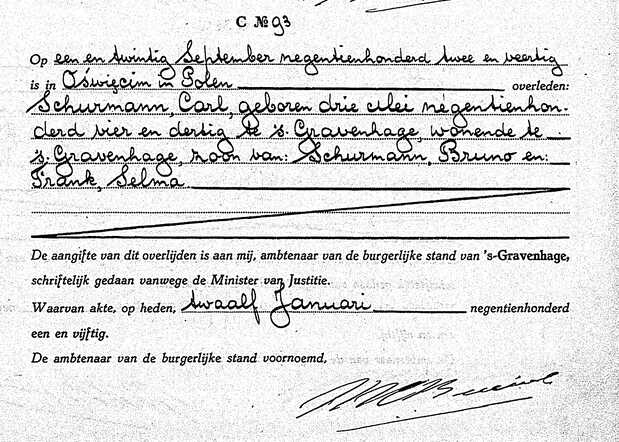 C No 93
Op een en twintig September negentienhonderd twee en veertig
is in Oświęcim in Polen overleden:
Schurmann, Carl, geboren drie Mei negentienhon-
derd vier en dertig te 's-Gravenhage, wonende te
's-Gravenhage, zoon van: Schurmann, Bruno en:
Frank, Selma
De aangifte van dit overlijden is aan mij, ambtenaar van de burgerlijke stand van 's-Gravenhage,
schriftelijk gedaan vanwege de Minister van Justitie.
Waarvan akte, op heden, twaalf Januari negentienhonderd
een en vijftig.
De ambtenaar van de burgerlijke stand voornoemd,